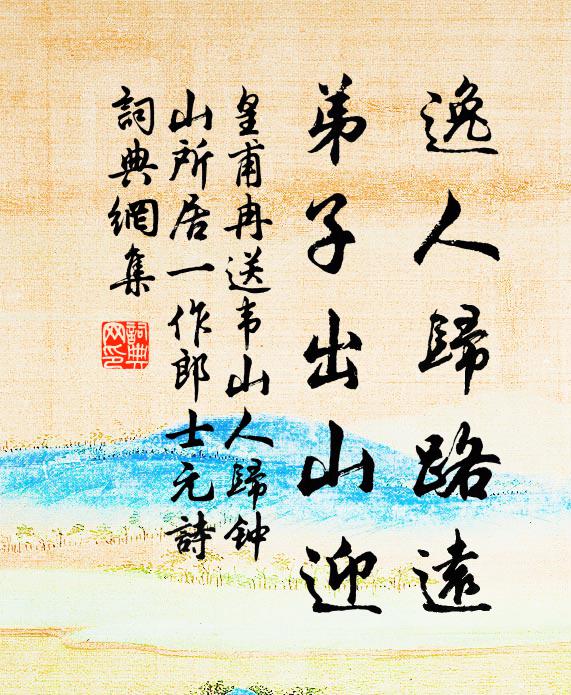 逸人歸路遠
弟子出山迎
皇甫冉送韦山人歸钟
山所居一作郎士元詩
詞典網集
詞典网印